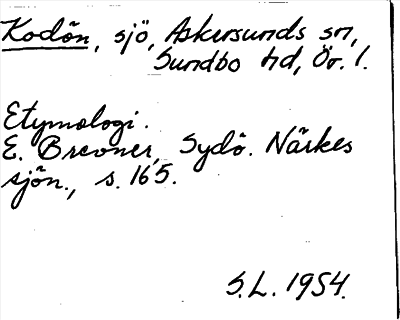 Kodön, sjö, Askersunds sn,
Sundbo hd, Ör. l.
Etymologi.
E. Brevner, Sydö. Närkes
sjön., s. 165.
S.L. 1954.